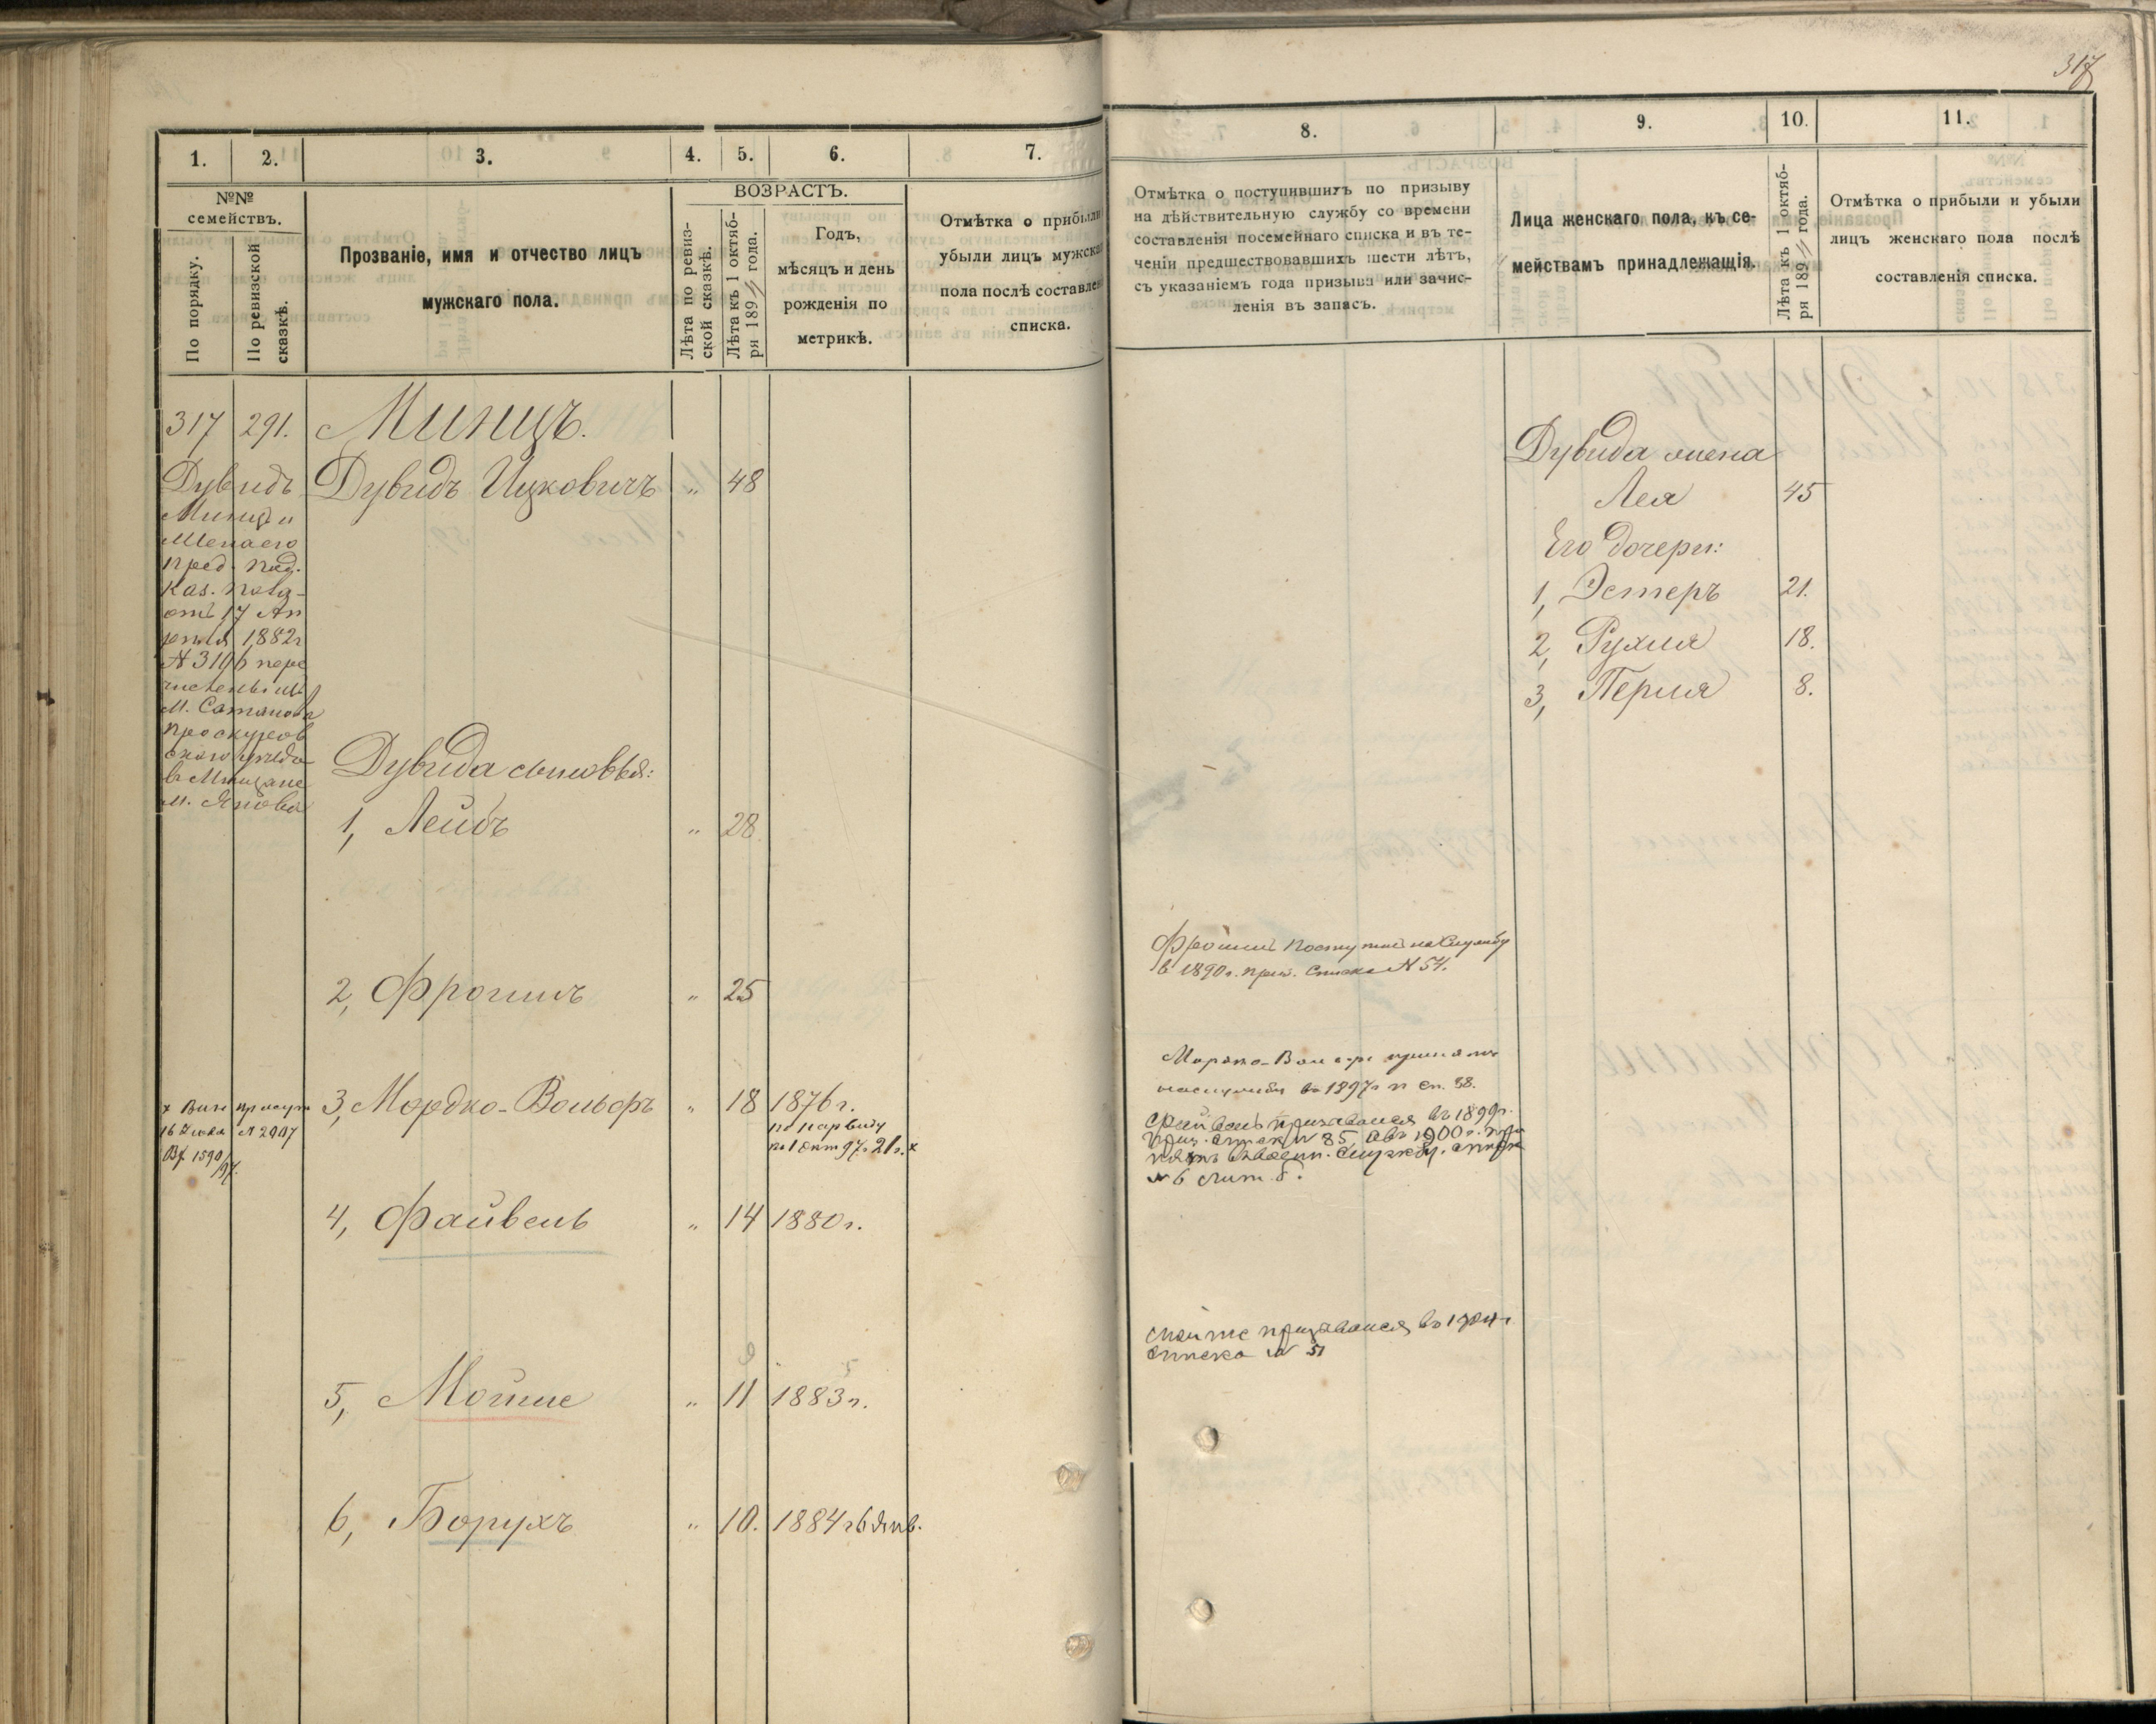 317
1.
2.
3.
4.
5.
6.
7.
№№
семействъ.
По порядку.
По ревизской
сказкѣ.
Прозваніе, имя и отчество лицъ
мужскаго пола.
ВОЗРАСТЪ.
Лѣта по ревиз-
ской сказкѣ.
Лѣта къ 1 октяб-
ря 189 года.
Годъ,
мѣсяцъ и день
рожденія по
метрикѣ.
Отмѣтка о прибыли
убыли лицъ мужска
пола послѣ составле
списка.
317 291. Минцъ.
Дувидъ Дувидъ Ицковичъ „ 48
Минцъ и
Шена его
пред. Под.
Каз. Пала.
отъ 17 Ап
рѣля 1882 г
№ 3196 пере
числены изъ
м. Сатанова
Проскуров
скаго уѣзда
в Мѣщане
м. Янова
Дувида сыновья:
1, Лейбъ „ 28
2, Фроимъ „ 25
3, Мордко-Вольфъ „ 18 1876 г.
по нар виду
къ 1 окт 97 г. 21 г. x
x Вин присут
16 Iюля № 2907
Вх 1590/97.
4, Файвель „ 14 1880 г.
9 5
5, Мошше „ 11 1883 г.
6, Борухъ „ 10. 1884 г 6 янв.
8.
9.
10.
11.
Отмѣтка о поступившихъ по призыву
на дѣйствительную службу со времени
составленія посемейнаго списка и въ те-
ченіи предшествовавшихъ шести лѣтъ,
съ указаніемъ года призыва или зачис-
ленія въ запасъ.
Лица женскаго пола, къ се-
мействамъ принадлежащія.
Лѣта къ 1 октяб-
ря 189 года.
Отмѣтка о прибыли и убыли
лицъ женскаго пола послѣ
составленія списка.
Дувида жена
Лея 45
Его дочери:
1, Эстеръ 21.
2, Рухля 18.
3, Перля 8.
Фроимъ поступилъ на службу
в 1890 г. приз. списка № 54.
Мордко-Вольфъ принятъ
на службу въ 1897 г п сп. 88.
Файвель призывался въ 1899 г.
приз. списк № 85, а въ 1900 г. при
нятъ въ военн. службу. списк
№ 6 лит. б.
Мошше призывался въ 1904 г.
списка № 51